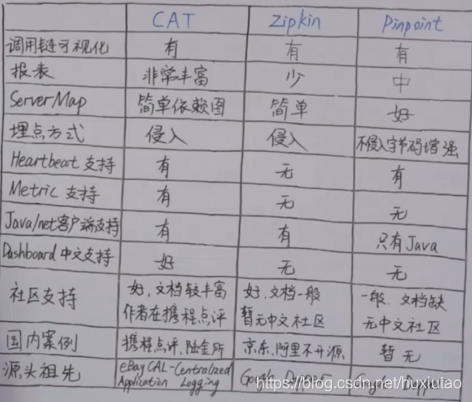 CAT Zipkin Pinpoint
调用链可视化 有 有 有
报表 非常丰富 少 中
ServerMap 简单依赖图 简单 好
埋点方式 侵入 侵入 不侵入字节码增强
Heartbeat 支持 有 无 有
Metric 支持 有 无 无
Java/net客户端支持 有 有 只有Java
Dashboard中文支持 好 无 无
社区支持 好,文档较丰富 作者在携程点评 好,文档一般 暂无中文社区 一般、文档缺 无中文社区
国内案例 携程点评,陆金所 京东,阿里不开源 暂无
源头祖先 eBay CAL-Centralized Application Logging Google Google
https://blog.csdn.net/huxiutao